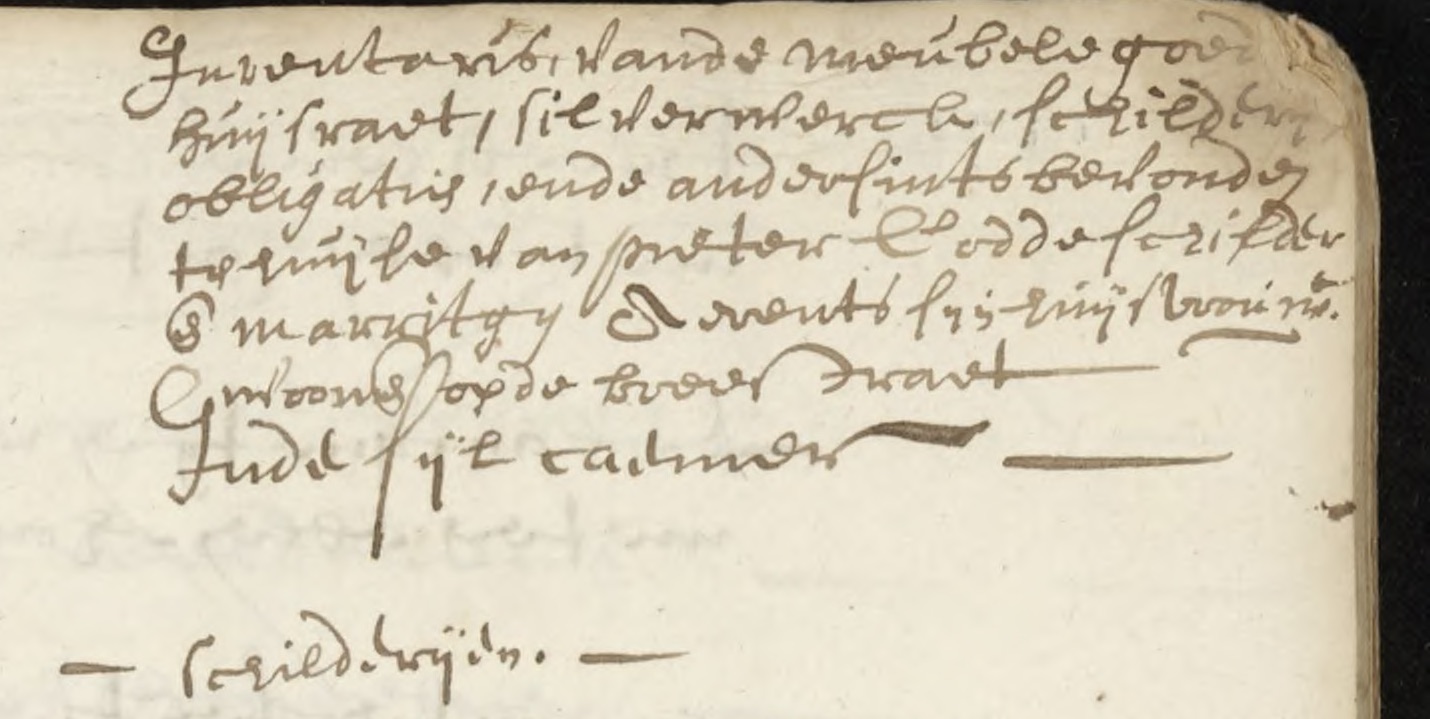 Inventaris, vande meubele goed
huijsraet, silverwerck, schildery
obligatis, ende andersints bevonden
te huijse van pieter Codde schilder
e marritgy Aerents syn huijsvrouw.
woone op de breestraet
Inde sijl caemer
schilderijen.